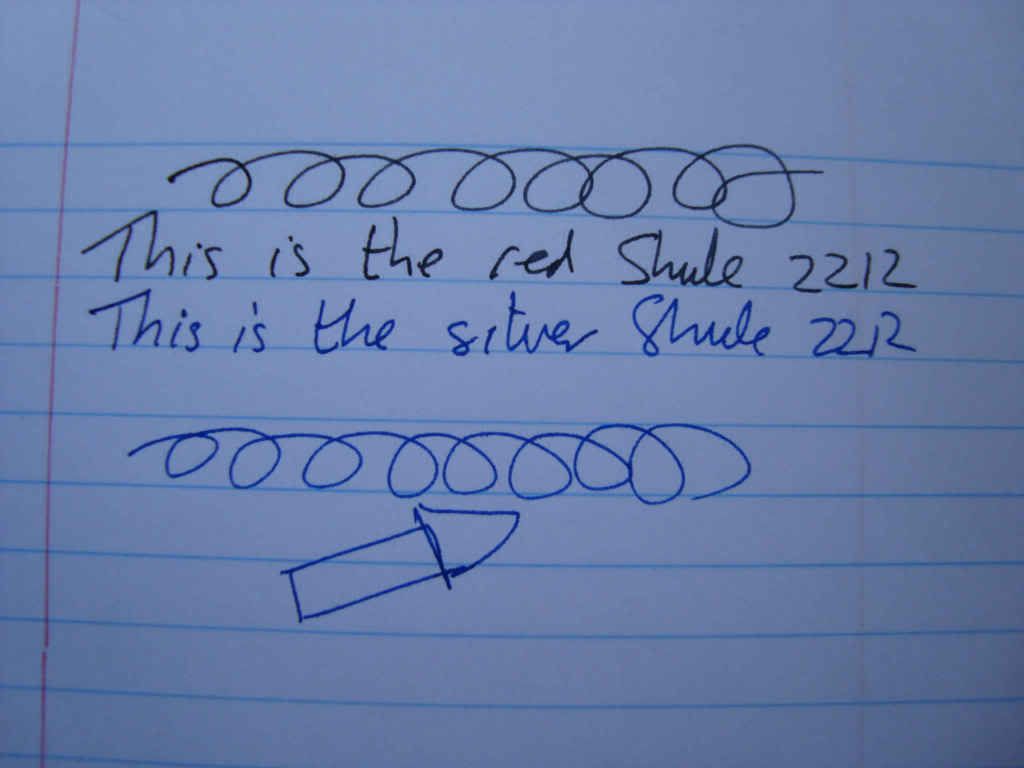 This is the red Shule 2212
This is the silver Shule 2212